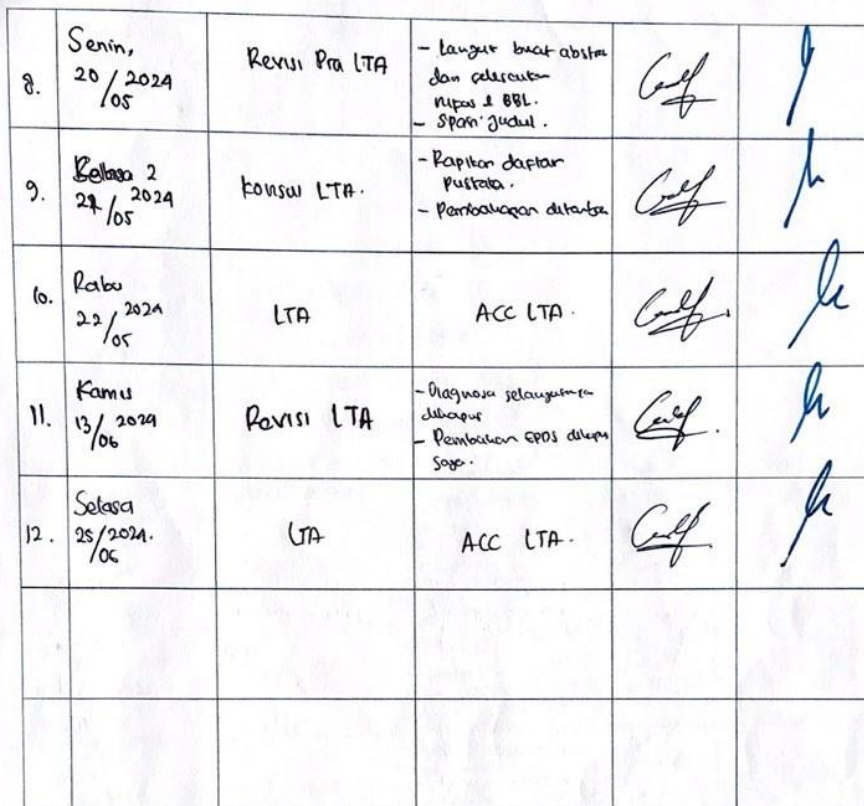 8.
Senin,
20/05 2024
Revisi Pra LTA
- Lanjut buat abstrak
dan
nifas & BBL.
- Spasi judul.
9.
2
21/05 2024
Konsul LTA.
- Rapikan daftar
pustaka.
- Pembahasan
10.
Rabu
22/05 2024
LTA
ACC LTA.
11.
Kamis
13/06 2024
Revisi LTA
- Diagnosa selanjutnya
dihapus
- EPDS dihapus
saja.
12.
Selasa
25/06 2024.
LTA
ACC LTA.